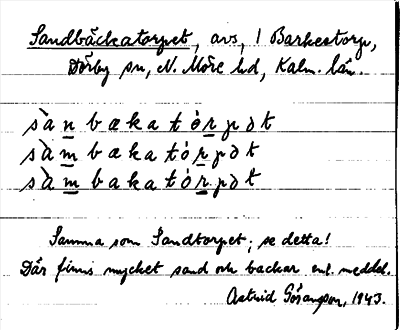 Sandbäckatorpet, avs, / Barkestorp,
Dörby sn, N. Möre hd, Kalm. län.
sànbækatórpət
sàmbækatórpət
sàmbakatórpət
Samma som Sandtorpet; se detta!
Där finns mycket sand och backar enl. meddel.
Astrid Göransson, 1943.